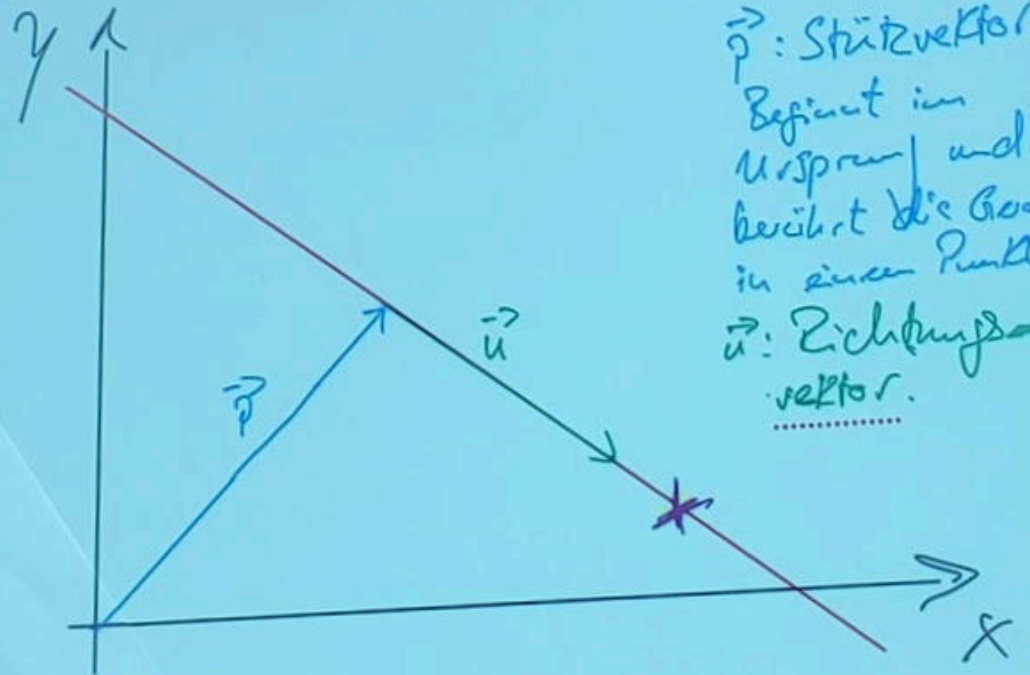 y
p⃗ : Stützvektor
Beginnt im
Ursprung und
berührt die Gera
in einem Punkt
u⃗
u⃗: Richtungs-
vektor.
p⃗
x